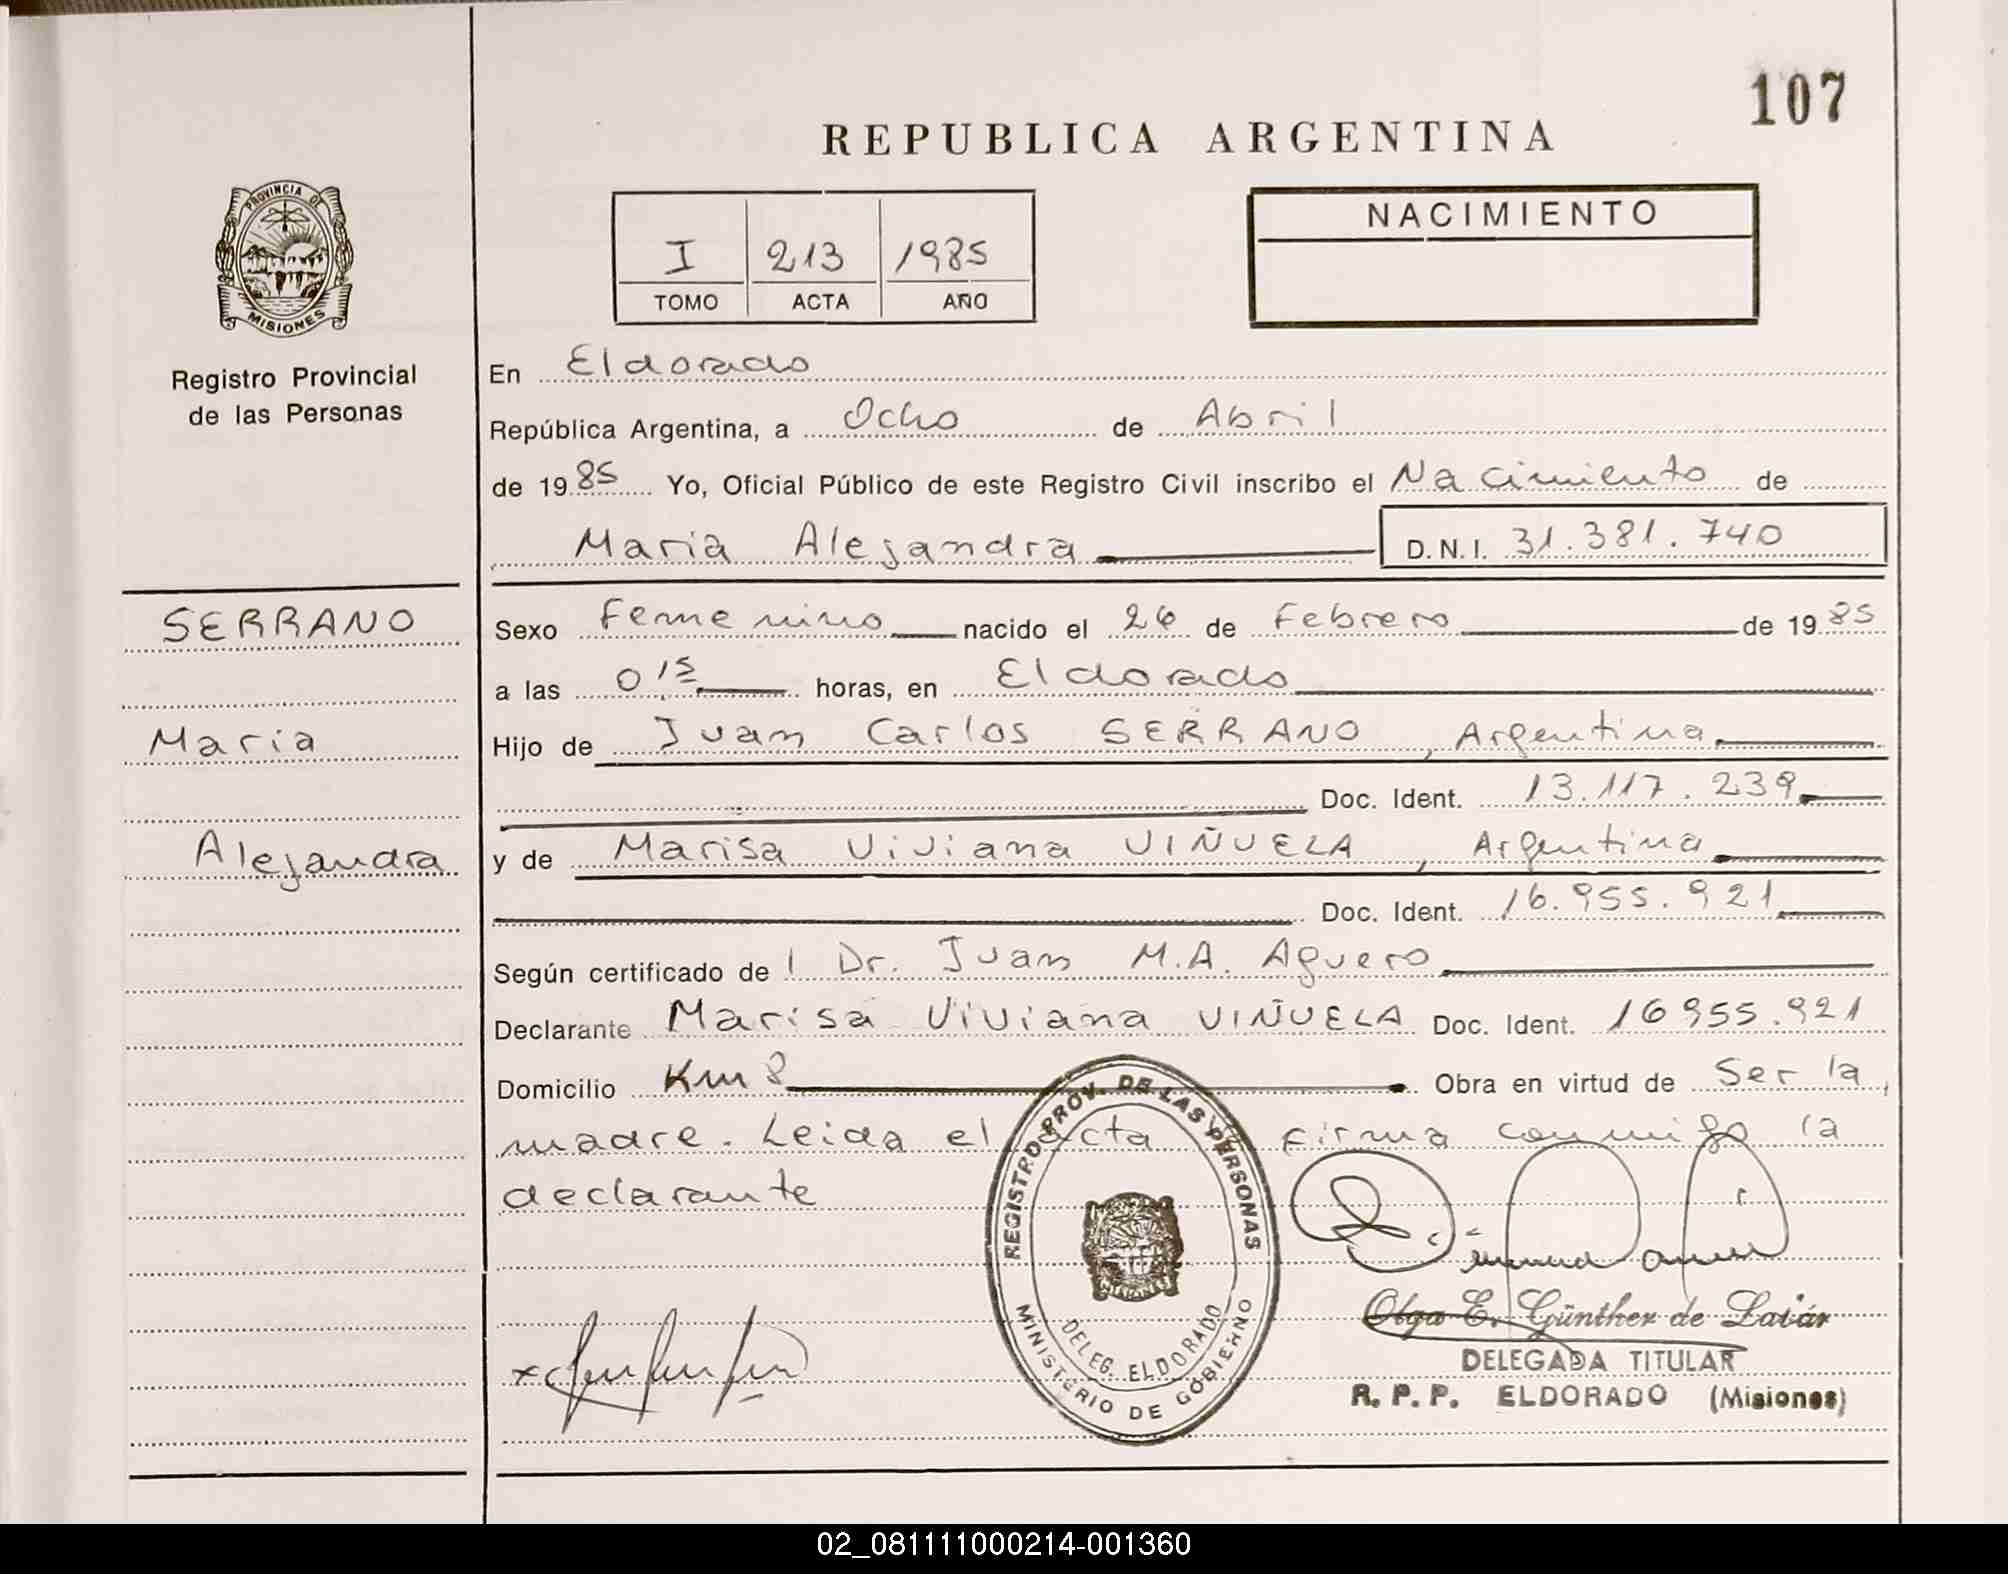 107
REPUBLICA ARGENTINA
PROVINCIA DE
MISIONES
Registro Provincial
de las Personas
I 213 1985
TOMO ACTA AÑO
NACIMIENTO
En Eldorado
República Argentina, a Ocho de Abril
de 1985 Yo, Oficial Público de este Registro Civil inscribo el Nacimiento de
Maria Alejandra D.N.I. 31.381.740
SERRANO
Maria
Alejandra
Sexo Femenino nacido el 26 de Febrero de 1985
a las 0 15 horas, en Eldorado
Hijo de Juan Carlos SERRANO, Argentina
Doc. Ident. 13.117.239
y de Marisa Viviana VIÑUELA, Argentina
Doc. Ident. 16.955.921
Según certificado de l Dr. Juan M.A. Aguero
Declarante Marisa Viviana VIÑUELA Doc. Ident. 16955.921
Domicilio Km 8 Obra en virtud de Ser la
madre. Leida el acta firma conmigo la
declarante
REGISTRO PROV. DE LAS PERSONAS
DELEG. ELDORADO
MINISTERIO DE GOBIERNO
Olga E. Günther de Laiár
DELEGADA TITULAR
R. P. P. ELDORADO (Misiones)
02_081111000214-001360